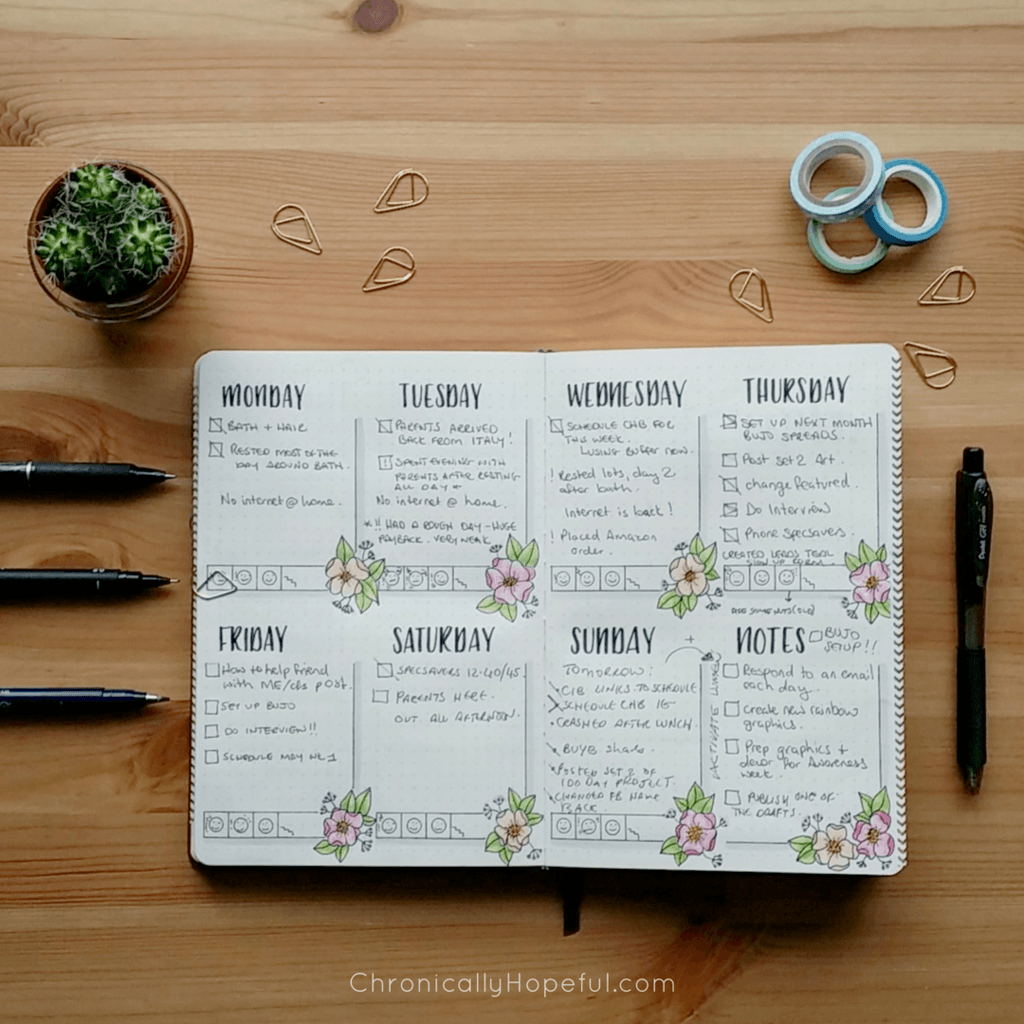 MONDAY
BATH + HAIR
RESTED MOST OF THE
DAY AROUND BATH.
No internet @ home.
TUESDAY
PARENTS ARRIVED
BACK FROM ITALY!
SPENT EVENING WITH
PARENTS AFTER RESTING
ALL DAY *
No internet @ home.
*!! HAD A ROUGH DAY - HUGE
PAYBACK. VERY WEAK
WEDNESDAY
SCHEDULE CHB FOR
THIS WEEK.
USING BUFFER NOW.
! Rested lots, day 2
after bath.
Internet is back!
! Placed Amazon
order.
THURSDAY
SET UP NEXT MONTH
BUJO SPREADS.
Post set 2 Art.
change featured.
Do Interview
Phone Specsavers.
CREATED LEADS TOOL
SIGN UP FORM
FRIDAY
How to help friend
with ME/cfs post.
SET UP BUJO
DO INTERVIEW!!
SCHEDULE MAY WK 1
SATURDAY
SPECSAVERS 12-40/45
PARENTS HERE.
OUT ALL AFTERNOON.
SUNDAY
TOMORROW:
LINKS TO SCHEDULE
SCHEDULE CHB IG
• CRASHED AFTER LUNCH.
BUYB share.
POSTED SET 2 OF
100 DAY PROJECT.
CHANGED FB NAME
BACK.
+
ACTIVATE
NOTES
BUJO
SETUP!!
Respond to an email
each day.
create new rainbow
graphics.
Prep graphics +
decor for Awareness
week.
PUBLISH ONE OF
THE DRAFTS.
Pentel
ChronicallyHopeful.com